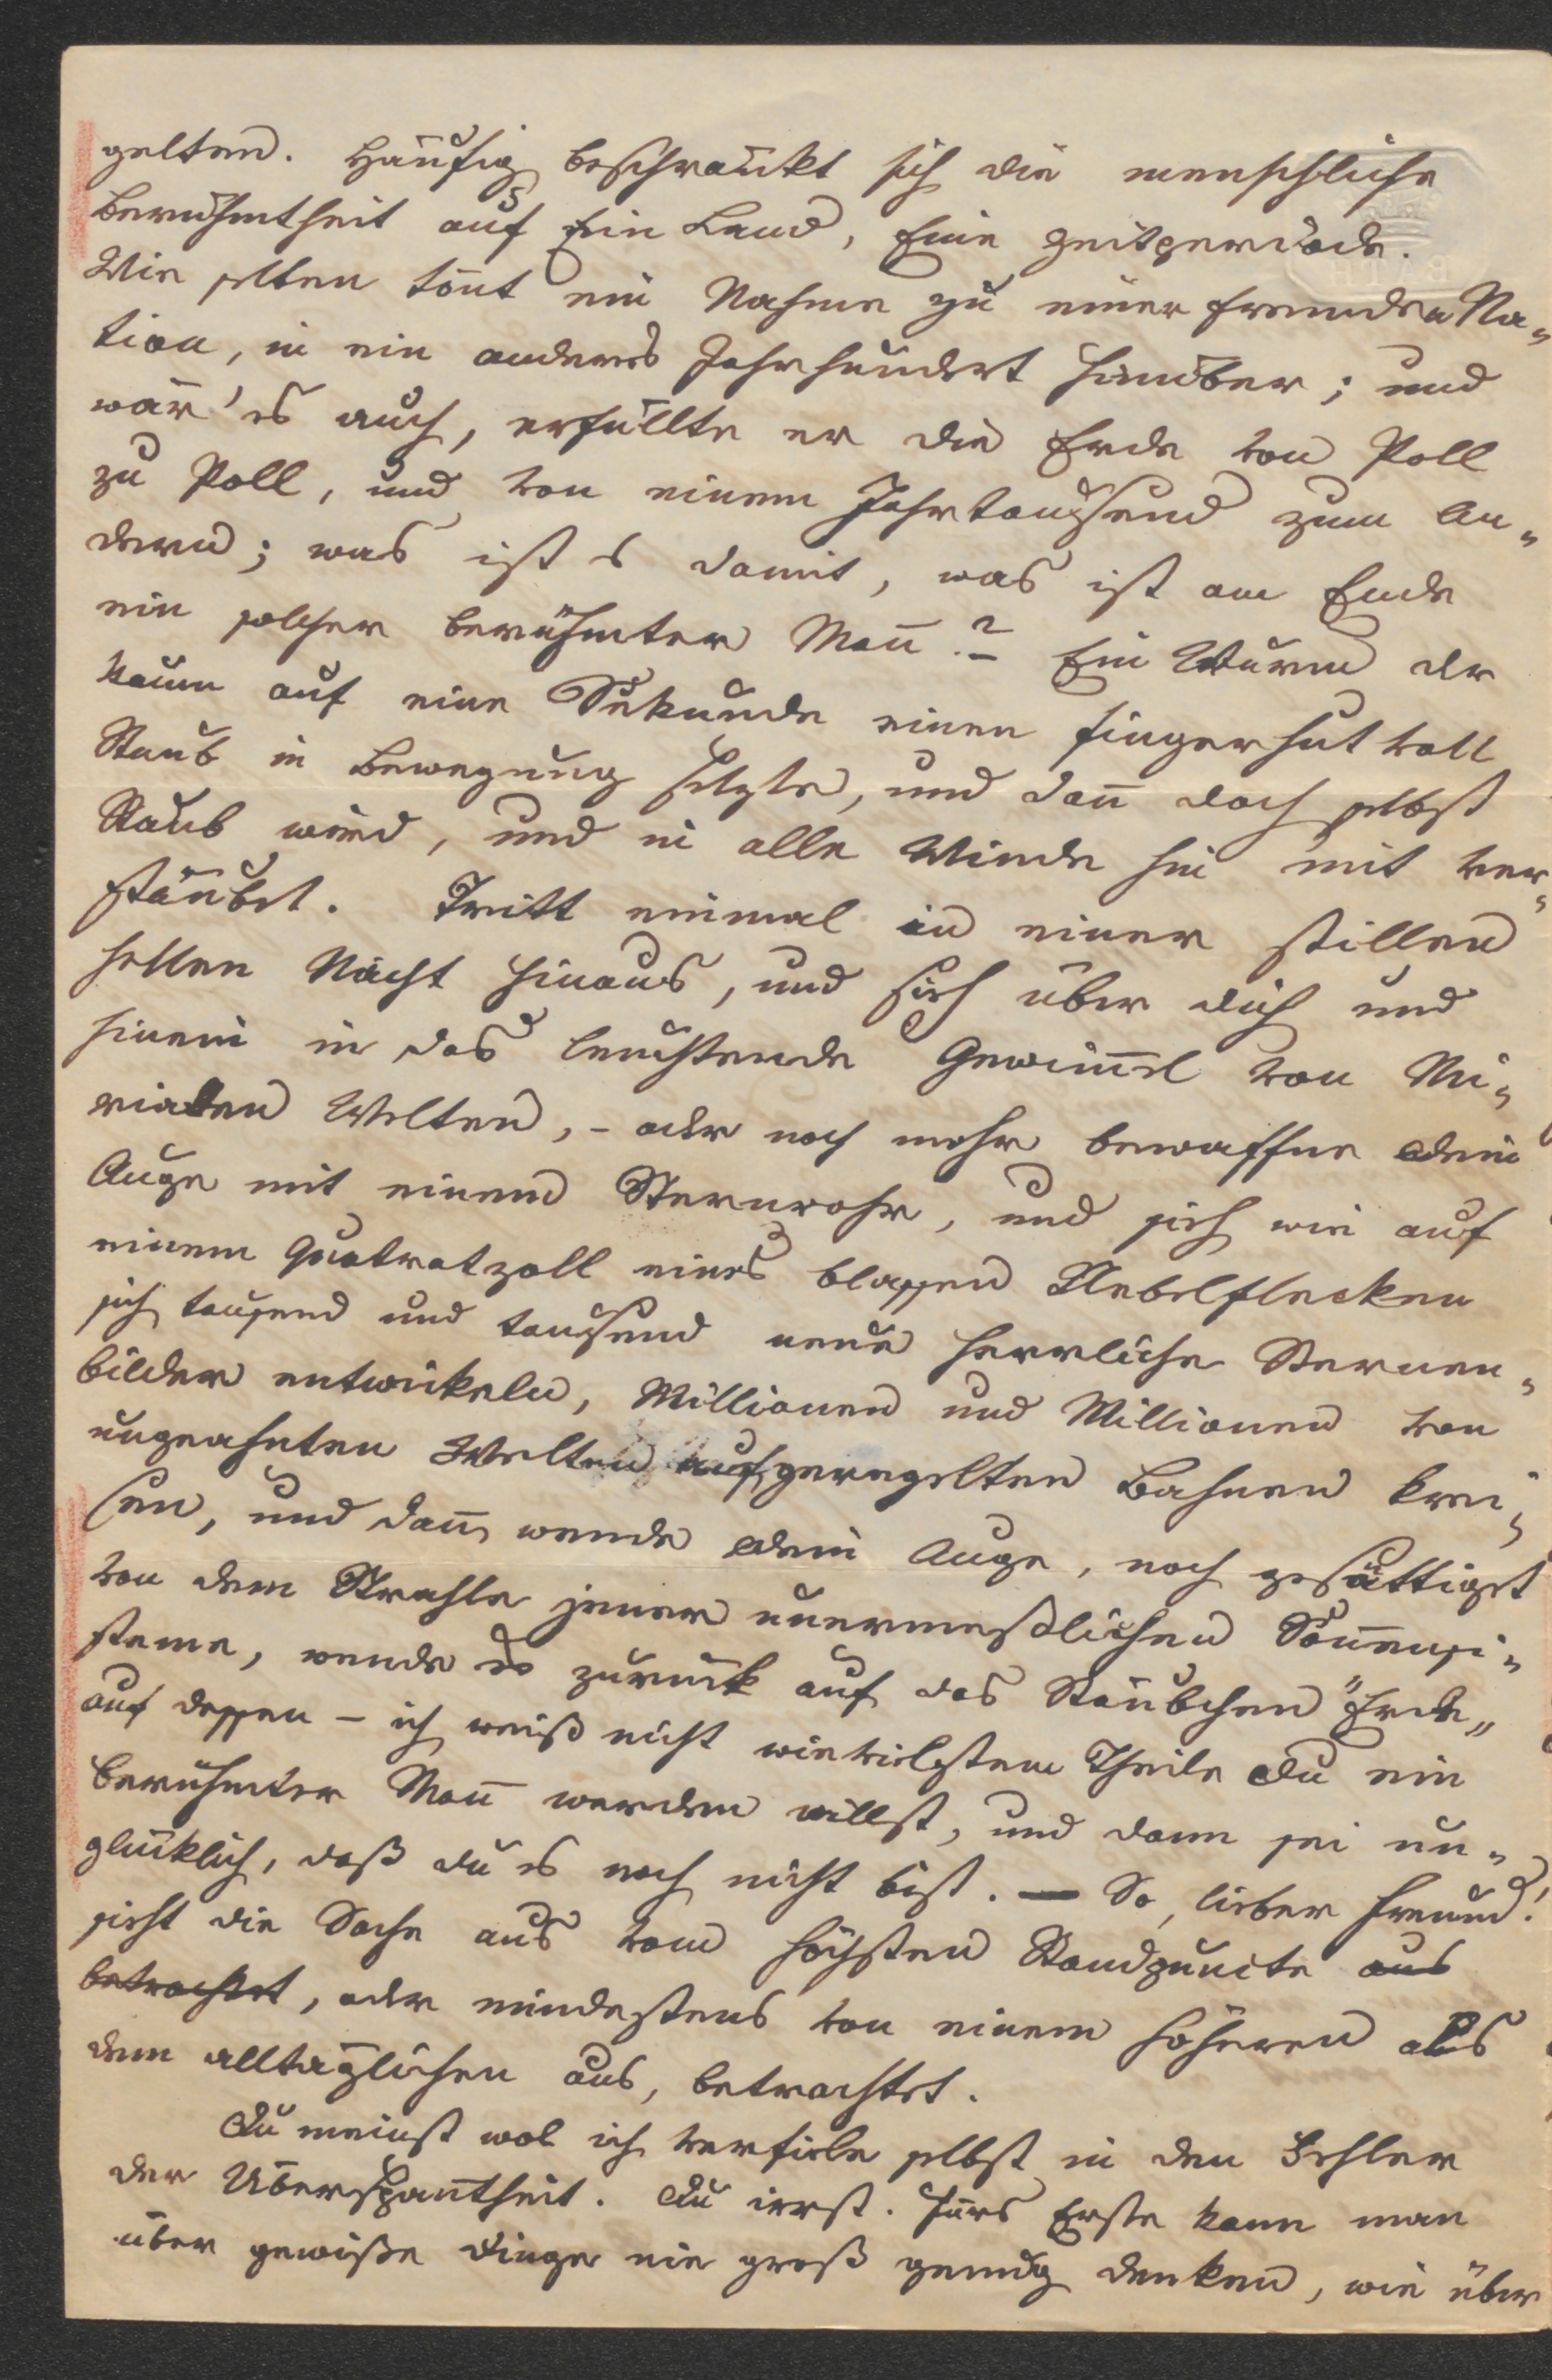 gelten. Häufig beschränkt sich die menschliche
Berühmtheit auf Ein Land, Eine Zeitperiode.
Wie selten tönt ein Nahme zu einer fremden Na-
tion, in ein anderes Jahrhundert hinüber; und
wär' es auch, erfüllte er die Erde von Poll
zu Poll, und von einem Jahrtausend zum An-
dern; was ist es damit, was ist am Ende
ein solcher berühmter Mañ? – Ein Wurm der
kaum auf eine Sekunde einen Fingerhut voll
Staub in Bewegung setzte, und dañ doch selbst
Staub wird, und in alle Winde hin mit ver-
stäubet. Tritt einmal in einer stillen
hellen Nacht hinaus, und sieh über dich und
hinein in das leuchtende Gewim̃el von Mi-
riaden Welten, – oder noch mehr bewaffne dein
Auge mit einem Sternrohr, und sieh wie auf
einem Quatratzoll eines blassen Nebelflecken
sich tausend und tausend neue herrliche Sternen-
bilder entwickeln, Millionen und Millionen von
ungeahnten Welten auf geregelten Bahnen krei-
sen, und dañ wende dein Auge, noch gesättiget
von dem Strahle jener unermeßlichen Soñensi-
steme, wende es zurück auf das Stäubchen "Erde"
auf dessen – ich weiß nicht wievielstem Theile du ein
berühmter Mañ werden willst, und dann sei un-
glücklich, daß du es noch nicht bist. — So, lieber Freund!
sieht die Sache aus vom höchsten Standpuncte aus
betrachtet, oder mindestens von einem höheren als
dem alltäglichen aus, betrachtet.
Du meinst wol ich verfiele selbst in den Fehler
der Überspañtheit. Du irrst. Fürs Erste kann man
über gewiße Dinge nie groß genug denken, wie über